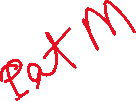 Pat M